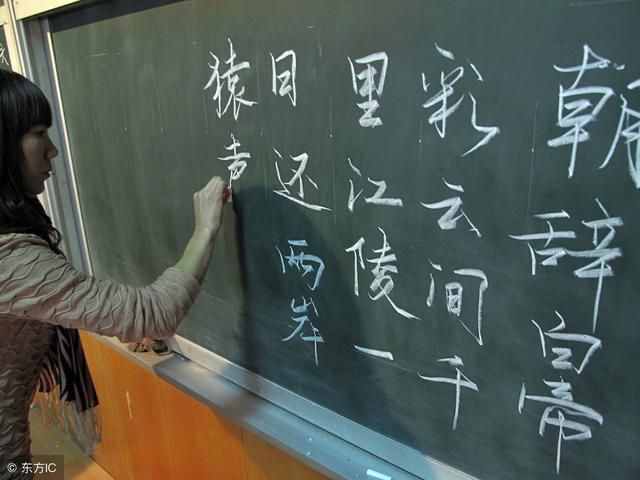 朝辞白帝
彩云间千
里江陵一
日还两岸
猿声
© 东方IC